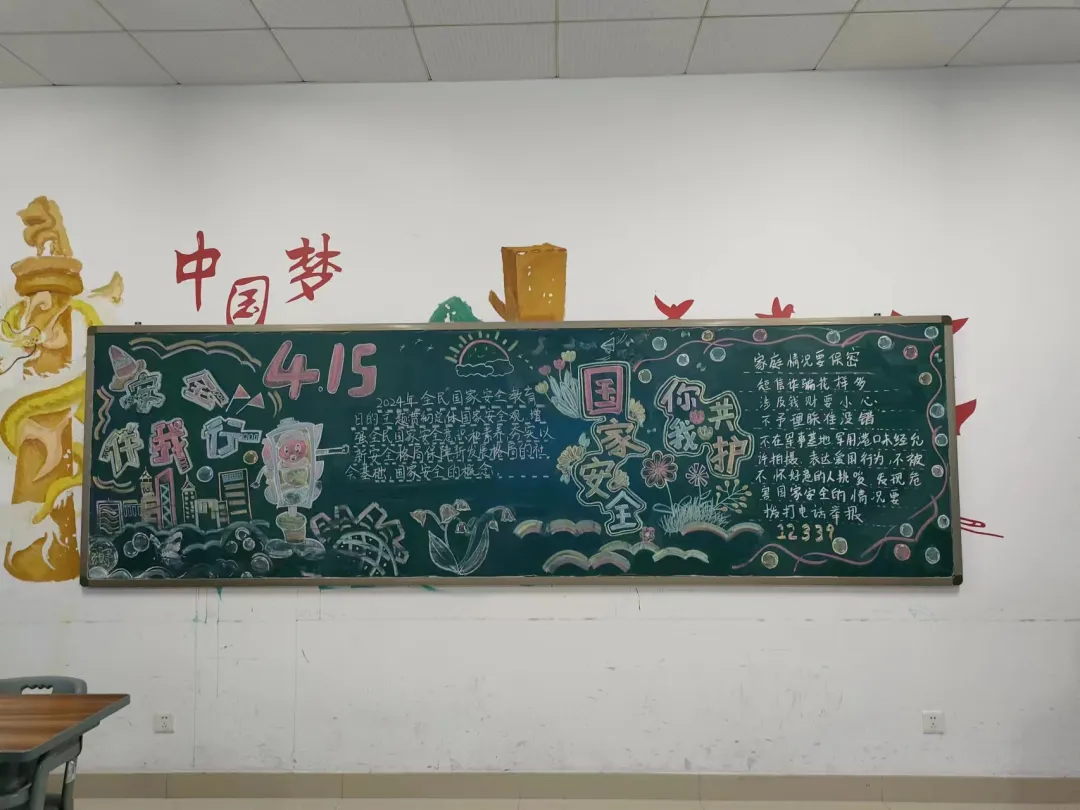 中国梦
4.15
安全
伴我行
2024年全民国家安全教育
日的主题贯彻总体国家安全观,增
强全民国家安全意识和素养,夯实以
新安全格局保障新发展格局的社
会基础,国家安全的概念
国家安全
你我共护
家庭情况要保密
短信诈骗花样多
涉及钱财要小心
不予理睬准没错
不在军事基地军用港口未经允
许拍摄.表达爱国行为,不被
不怀好意的人挑拨.发现危
害国家安全的情况要
拨打电话举报
12339